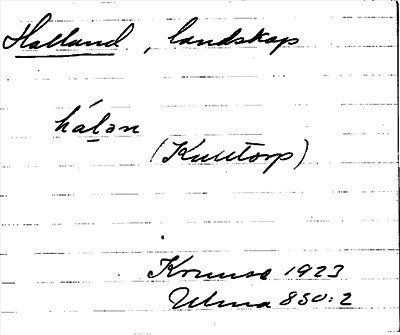 Halland, landskap
hálən
(Kulltorp)
1923
Ulma 850:2